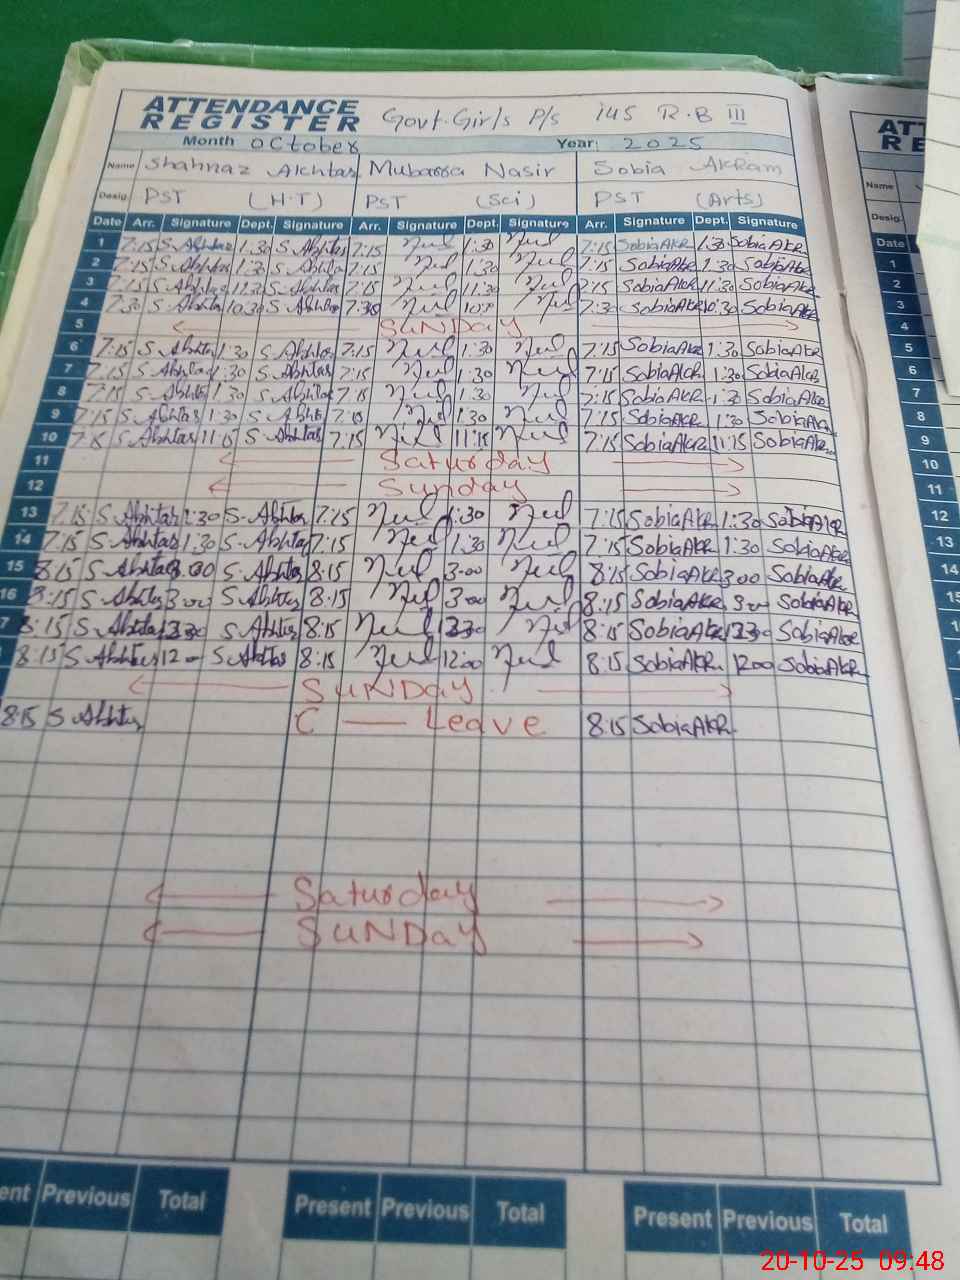 ATTENDANCE REGISTER Govt. Girls P/s 145 R.B III
Month October Year: 2025
Name Shahnaz Akhtar Mubarra Nasir Sobia Akram
Desig. PST (H.T) PST (Sci) PST (Arts)
Date Arr. Signature Dept. Signature Arr. Signature Dept. Signature Arr. Signature Dept. Signature
1 7:15 S. Akhtar 1:30 S. Akhtar 7:15 1:30 7:15 SobiaAkR 1:30 SobiaAkR
2 7:15 S. Akhtar 1:30 S. Akhtar 7:15 1:30 7:15 SobiaAkR 1:30 SobiaAkR
3 7:15 S. Akhtar 11:30 S. Akhtar 7:15 11:30 7:15 SobiaAkR 11:30 SobiaAkR
4 7:30 S. Akhtar 10:30 S. Akhtar 7:30 7:30 SobiaAkR 10:30 SobiaAkR
5 SUNDay
6 7:15 S. Akhtar 1:30 S. Akhtar 7:15 1:30 7:15 SobiaAkR 1:30 SobiaAkR
7 7:15 S. Akhtar 1:30 S. Akhtar 7:15 1:30 7:15 SobiaAkR 1:30 SobiaAkR
8 7:15 S. Akhtar 1:30 S. Akhtar 7:15 1:30 7:15 SobiaAkR 1:30 SobiaAkR
9 7:15 S. Akhtar 1:30 S. Akhtar 7:15 1:30 7:15 SobiaAkR 1:30 SobiaAkR
10 7:15 S. Akhtar 11:15 S. Akhtar 7:15 11:15 7:15 SobiaAkR 11:15 SobiaAkR
11 Saturday
12 Sunday
13 7:15 S. Akhtar 1:30 S. Akhtar 7:15 1:30 7:15 SobiaAkR 1:30 SobiaAkR
14 7:15 S. Akhtar 1:30 S. Akhtar 7:15 1:30 7:15 SobiaAkR 1:30 SobiaAkR
15 8:15 S. Akhtar 3:00 S. Akhtar 8:15 3:00 8:15 SobiaAkR 3:00 SobiaAkR
16 8:15 S. Akhtar 3:00 S. Akhtar 8:15 3:00 8:15 SobiaAkR 3:00 SobiaAkR
7 8:15 S. Akhtar S. Akhtar 8:15 8:15 SobiaAkR SobiaAkR
8:15 S. Akhtar 12 S. Akhtar 8:15 12:00 8:15 SobiaAkR 12:00 SobiaAkR
SUNDAY
8:15 S. Akhtar C — Leave 8:15 SobiaAkR
Saturday
SUNDay
ent Previous Total Present Previous Total Present Previous Total
AT
RE
Name
Desig.
Date
1
2
3
4
5
6
7
8
9
10
11
12
13
14
15
20-10-25 09:48